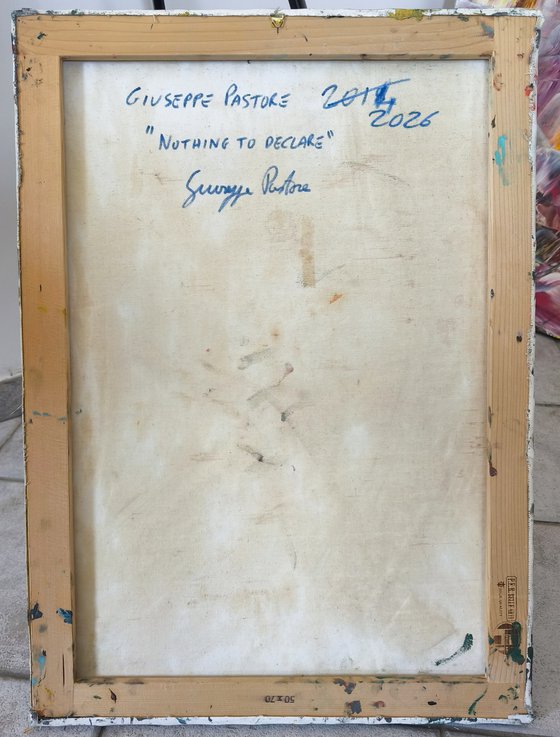 GIUSEPPE PASTORE 2026
"NOTHING TO DECLARE"
Giuseppe Pastore
50 x 70